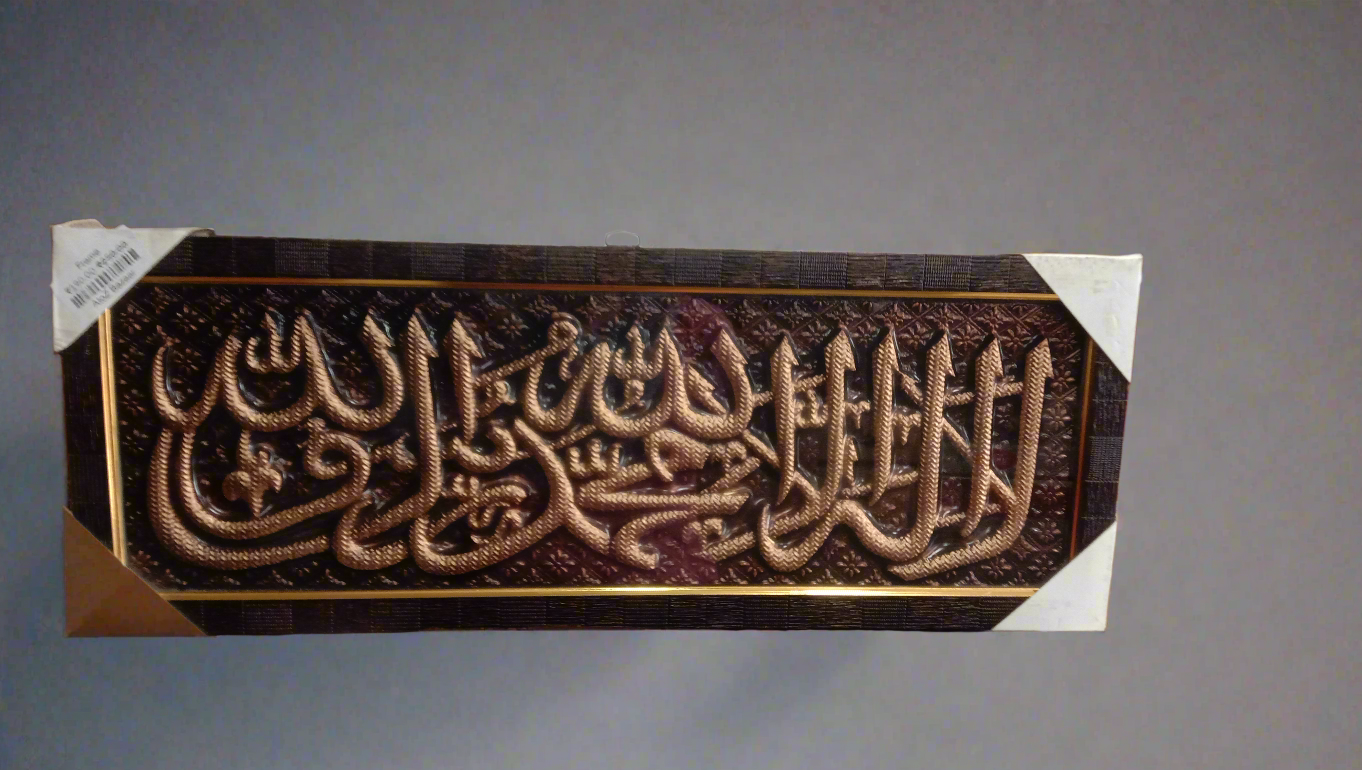 Frame
A to Z Bazaar
لا إله إلا الله محمد رسول الله